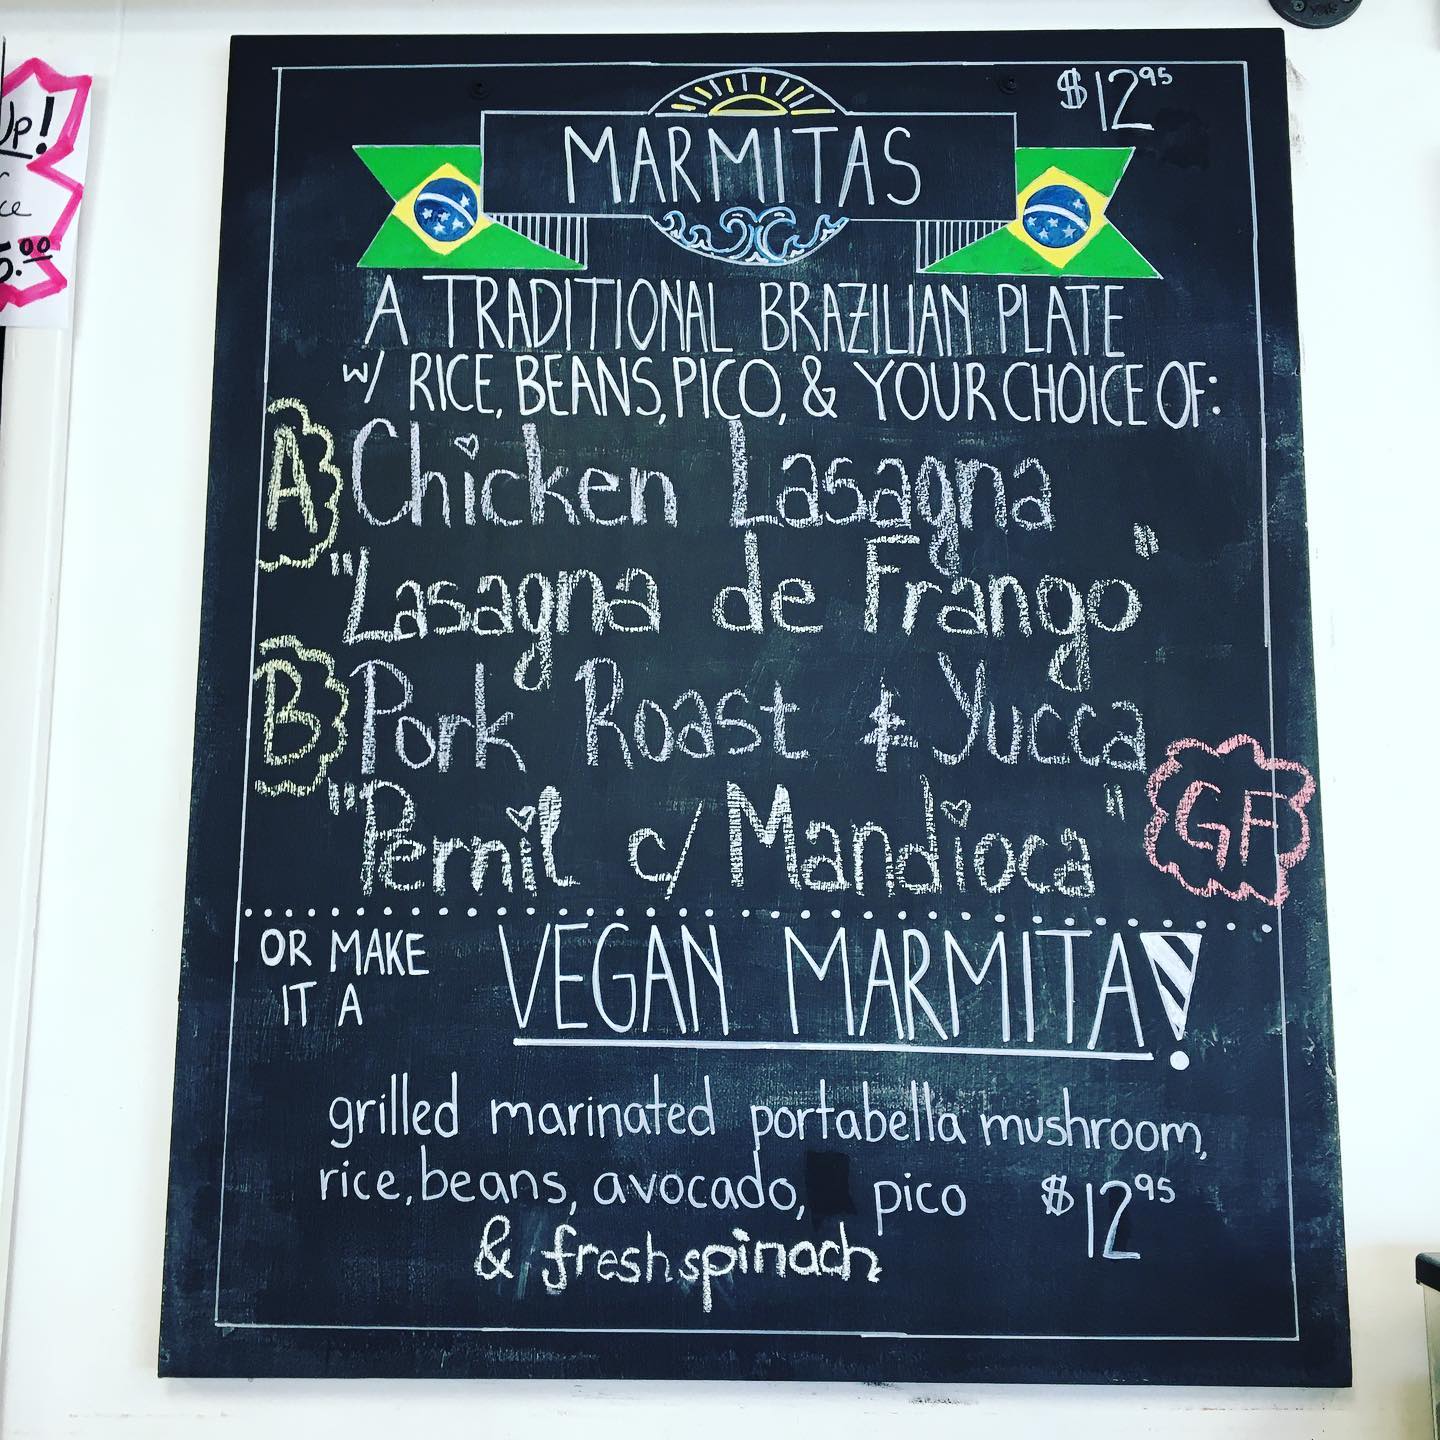 Up!
ce
5.00
$12.95
MARMITAS
A TRADITIONAL BRAZILIAN PLATE
w/ RICE, BEANS, PICO, & YOUR CHOICE OF:
A Chicken Lasagna
"Lasagna de Frango"
B Pork Roast & Yucca
"Pernil c/ Mandioca" GF
OR MAKE
IT A
VEGAN MARMITA!
grilled marinated portabella mushroom,
rice, beans, avocado, pico $12.95
& fresh spinach